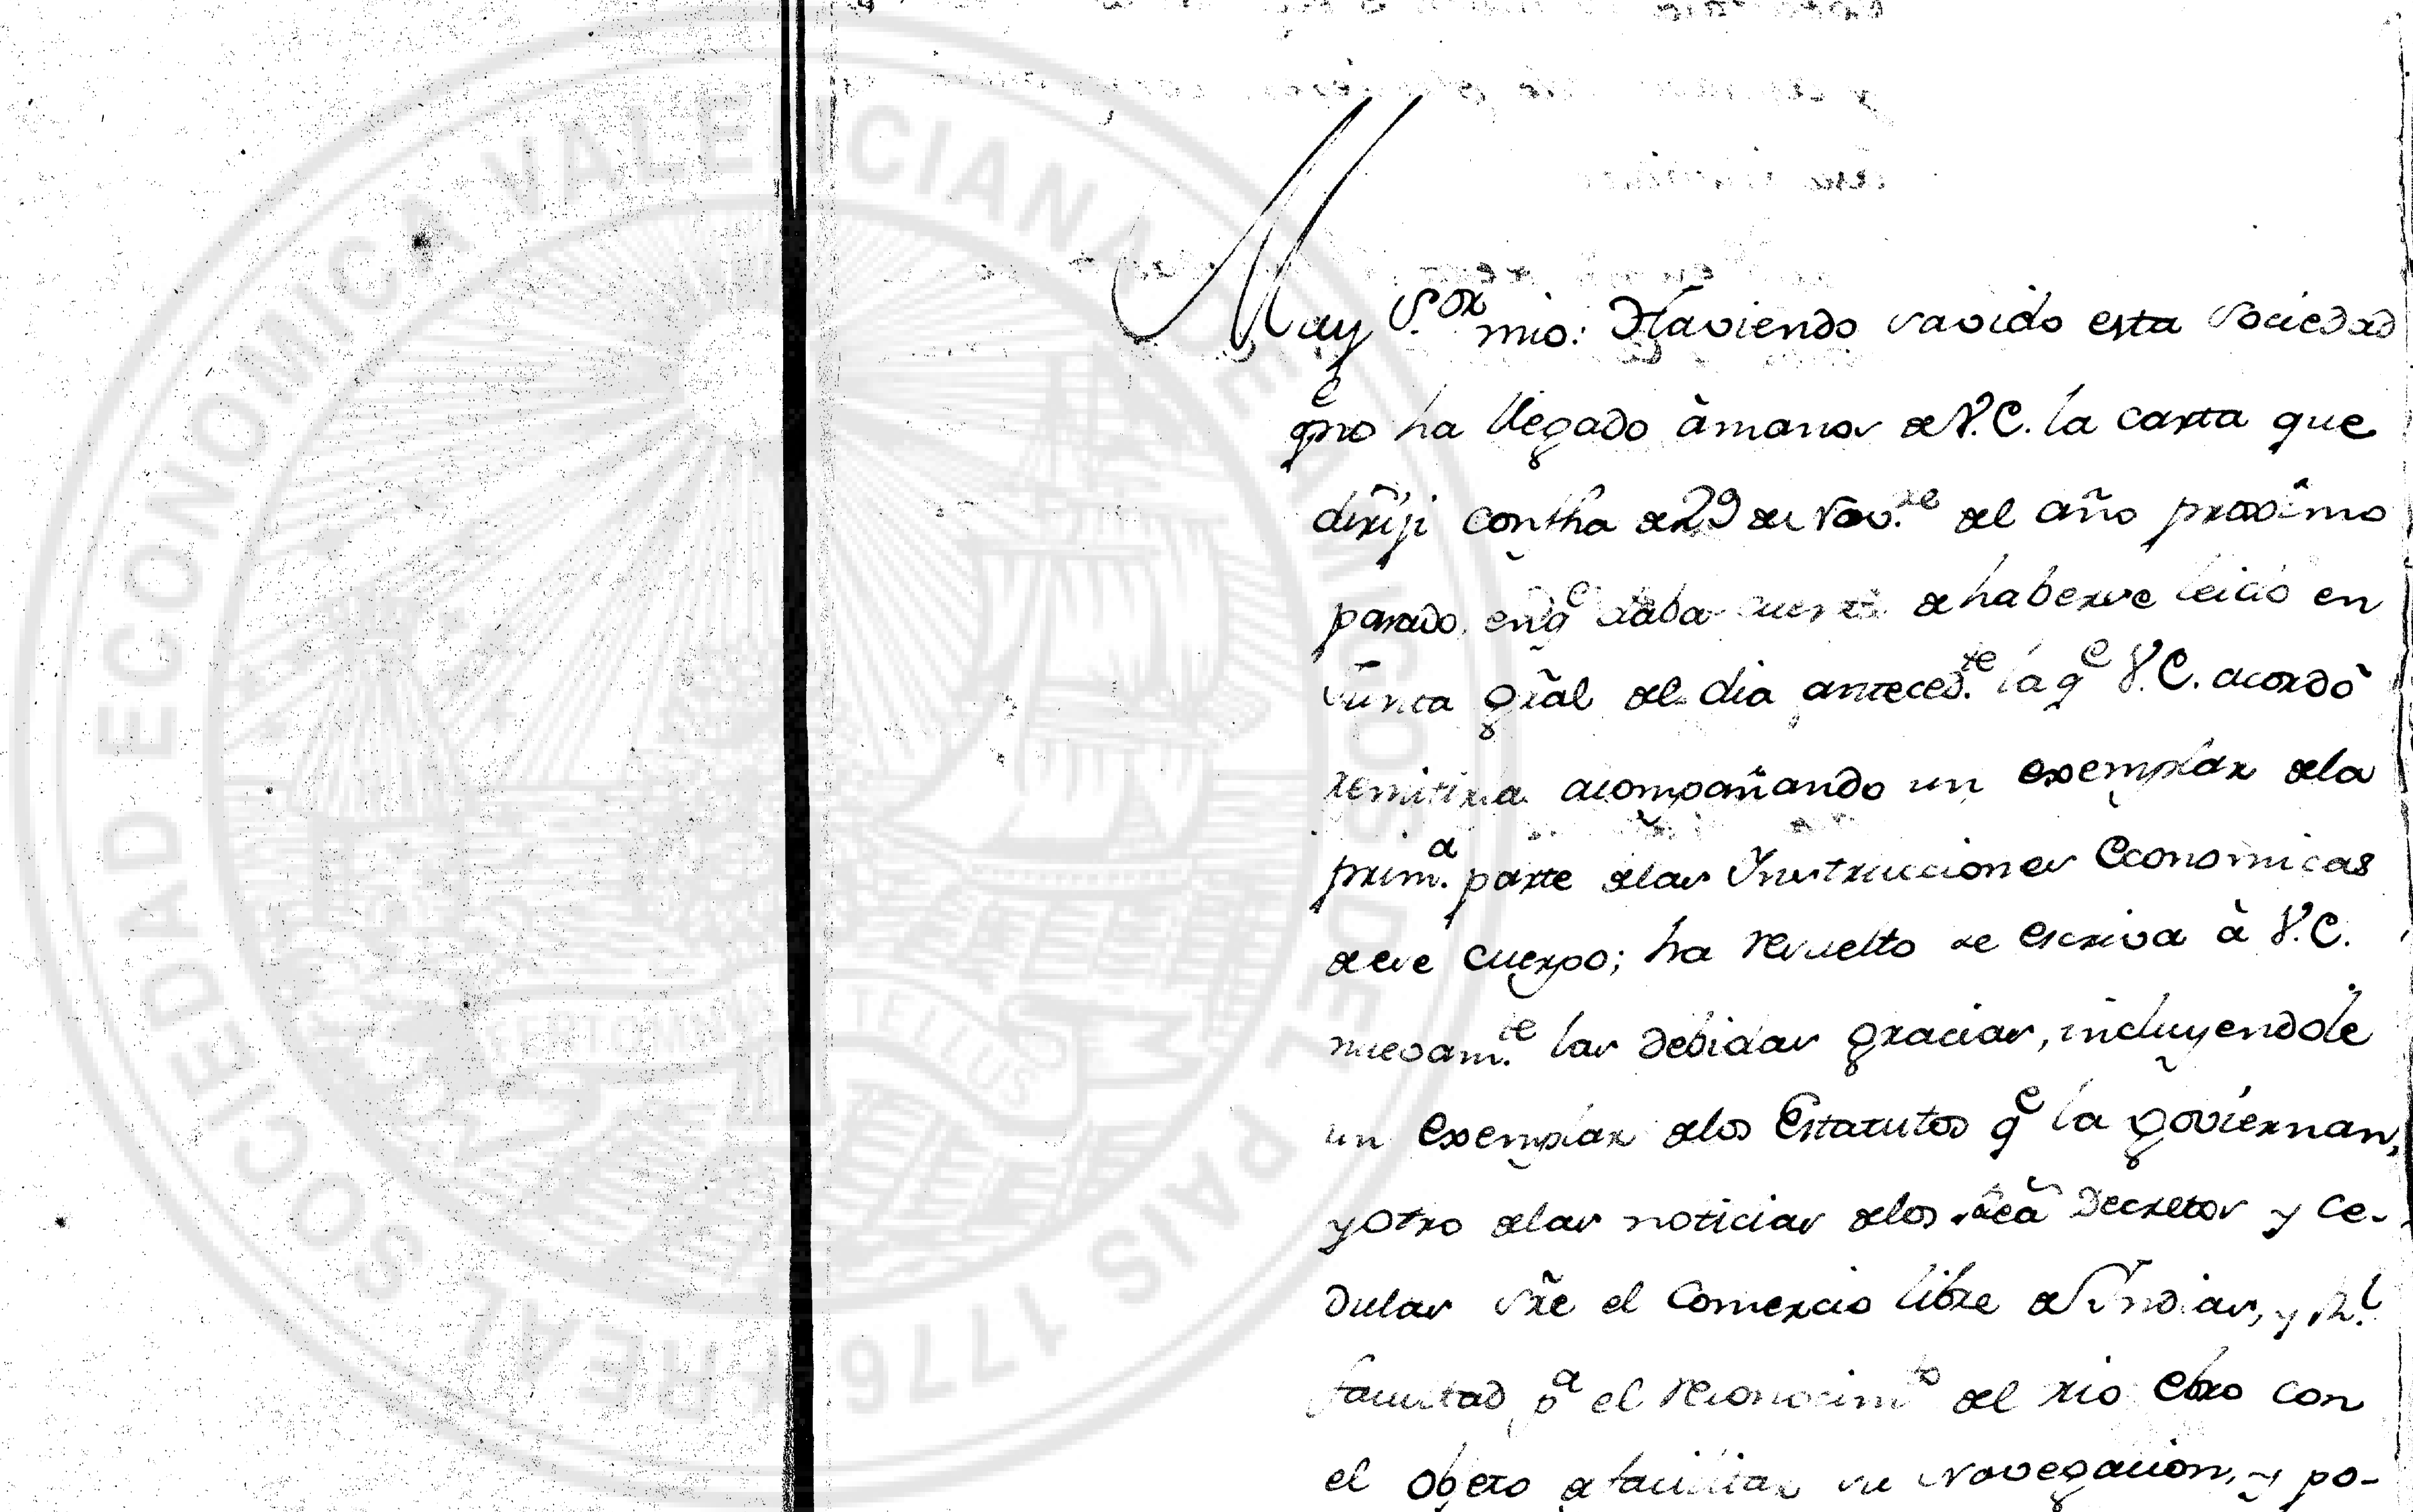 REAL SOCIEDAD ECONOMICA VALENCIANA DE AMIGOS DEL PAIS 1776
Muy S.or mio: Haviendo savido esta Sociedad
q.e no ha llegado à manos de V.E. la carta que
dirijì con fha de 29 de Nov.re del año proximo
pasado, en q.e daba cuenta de haberse leido en
Junta gral del dia anteced.te la q.e V.E. acordò
remitirla acompañando un exemplar de la
prim.a parte de las Instrucciones Economicas
de ese cuerpo; ha resuelto se escriva à V.E.
nuevam.te las debidas gracias, incluyendole
un exemplar de los Estatutos q.e la goviernan,
y otro de las noticias de los Decretos y Ce-
dulas sre el Comercio libre de Indias, y R.l
facultad p.a el reconocim.to del rio Ebro con
el objeto de facilitar su Navegacion, y po-